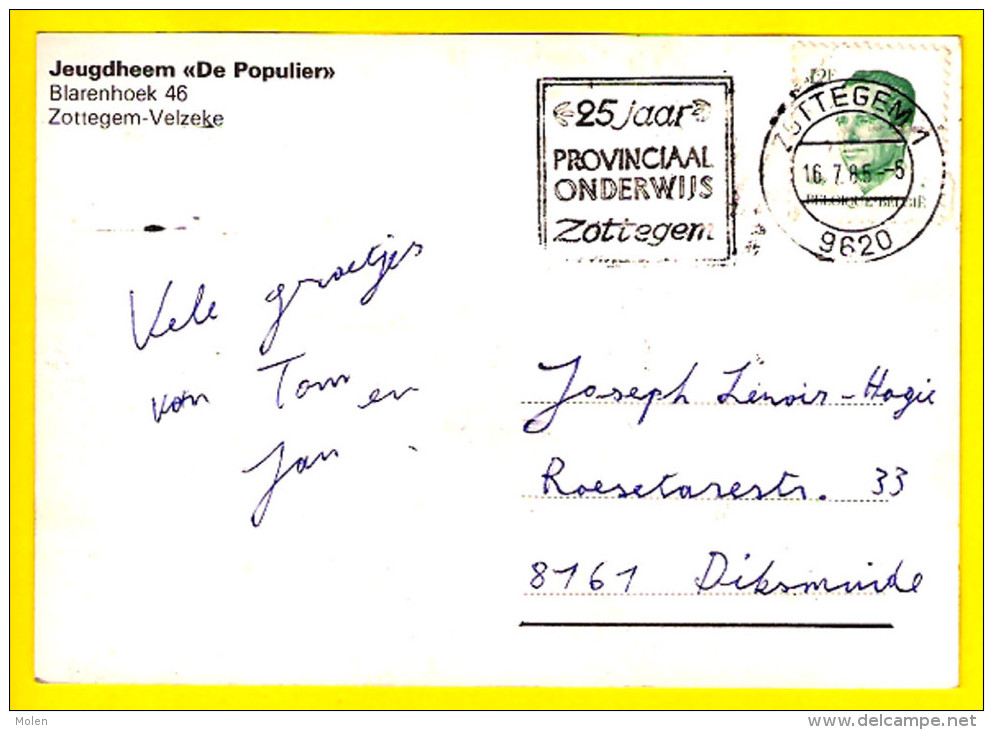 Jeugdheem «De Populier»
Blarenhoek 46
Zottegem-Velzeke
25 jaar
PROVINCIAAL
ONDERWIJS
Zottegem
ZOTTEGEM 1
16.7.85.-5
9620
BELGIQUE-BELGIË
Vele groetjes
van Tom en
Jan.
Joseph Lenoir-Hagie
Roesetarestr. 33
8161 Diksmuide
Molen
www.delcampe.net